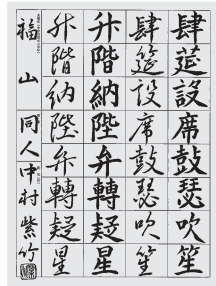 肆莚設席鼓瑟吹笙
肆筵設席鼓瑟吹笙
升階納陛弁轉疑星
升階納陛弁轉疑星
福山 同人 中村紫竹